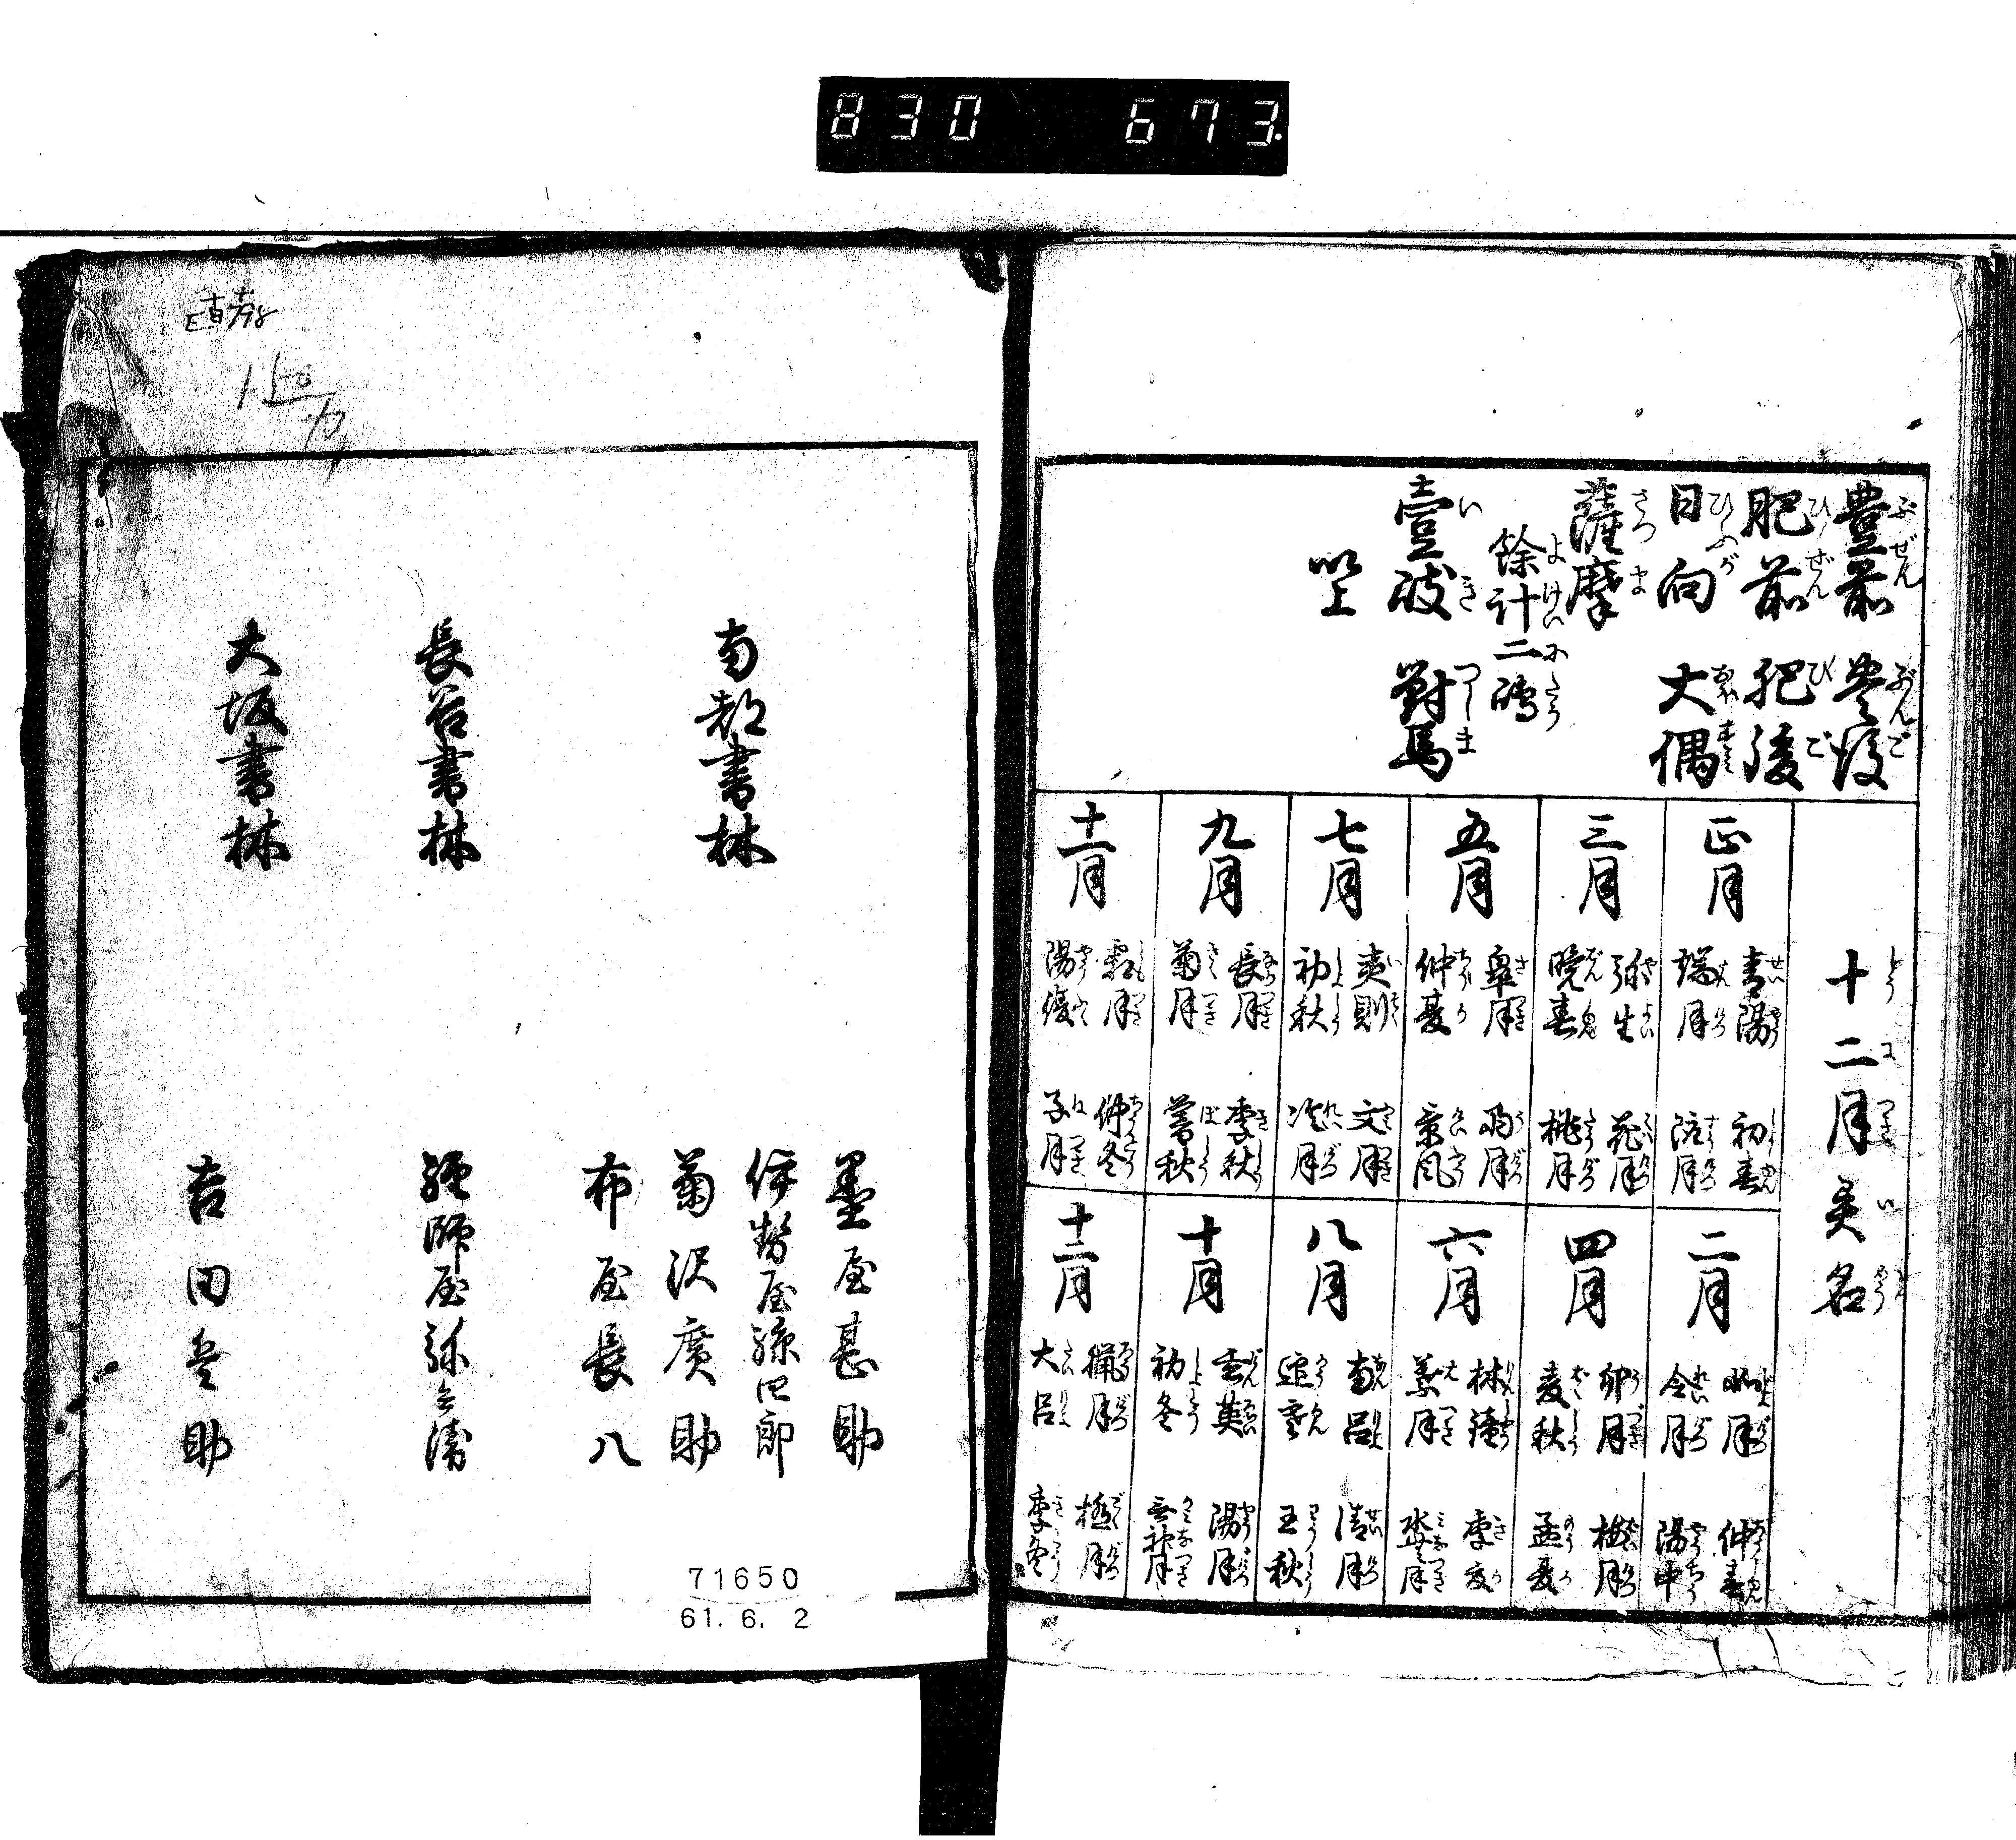 830 673
豊前 豊後
肥前 肥後
日向 大隅
薩摩
餘計二嶋
壹岐 對馬
以上
十二月異名
正月
青陽 初春
端月 陬月
三月
弥生 花月
晩春 桃月
五月
皐月 雨月
仲夏 景風
七月
夷則 文月
初秋 冷月
九月
長月 季秋
菊月 暮秋
十一月
霜月 仲冬
陽復 子月
二月
如月 仲春
令月 陽中
四月
卯月 梅月
麦秋 孟夏
六月
林鐘 季夏
葉月 水無月
八月
南呂 清月
迎寒 玉秋
十月
重英 陽月
初冬 無神月
十二月
臘月 極月
大呂 季冬
南都書林
墨屋甚助
伊勢屋孫四郎
菊沢廣助
布屋長八
長谷書林
経師屋弥兵衛
大坂書林
吉田兵助
71650
61. 6. 2